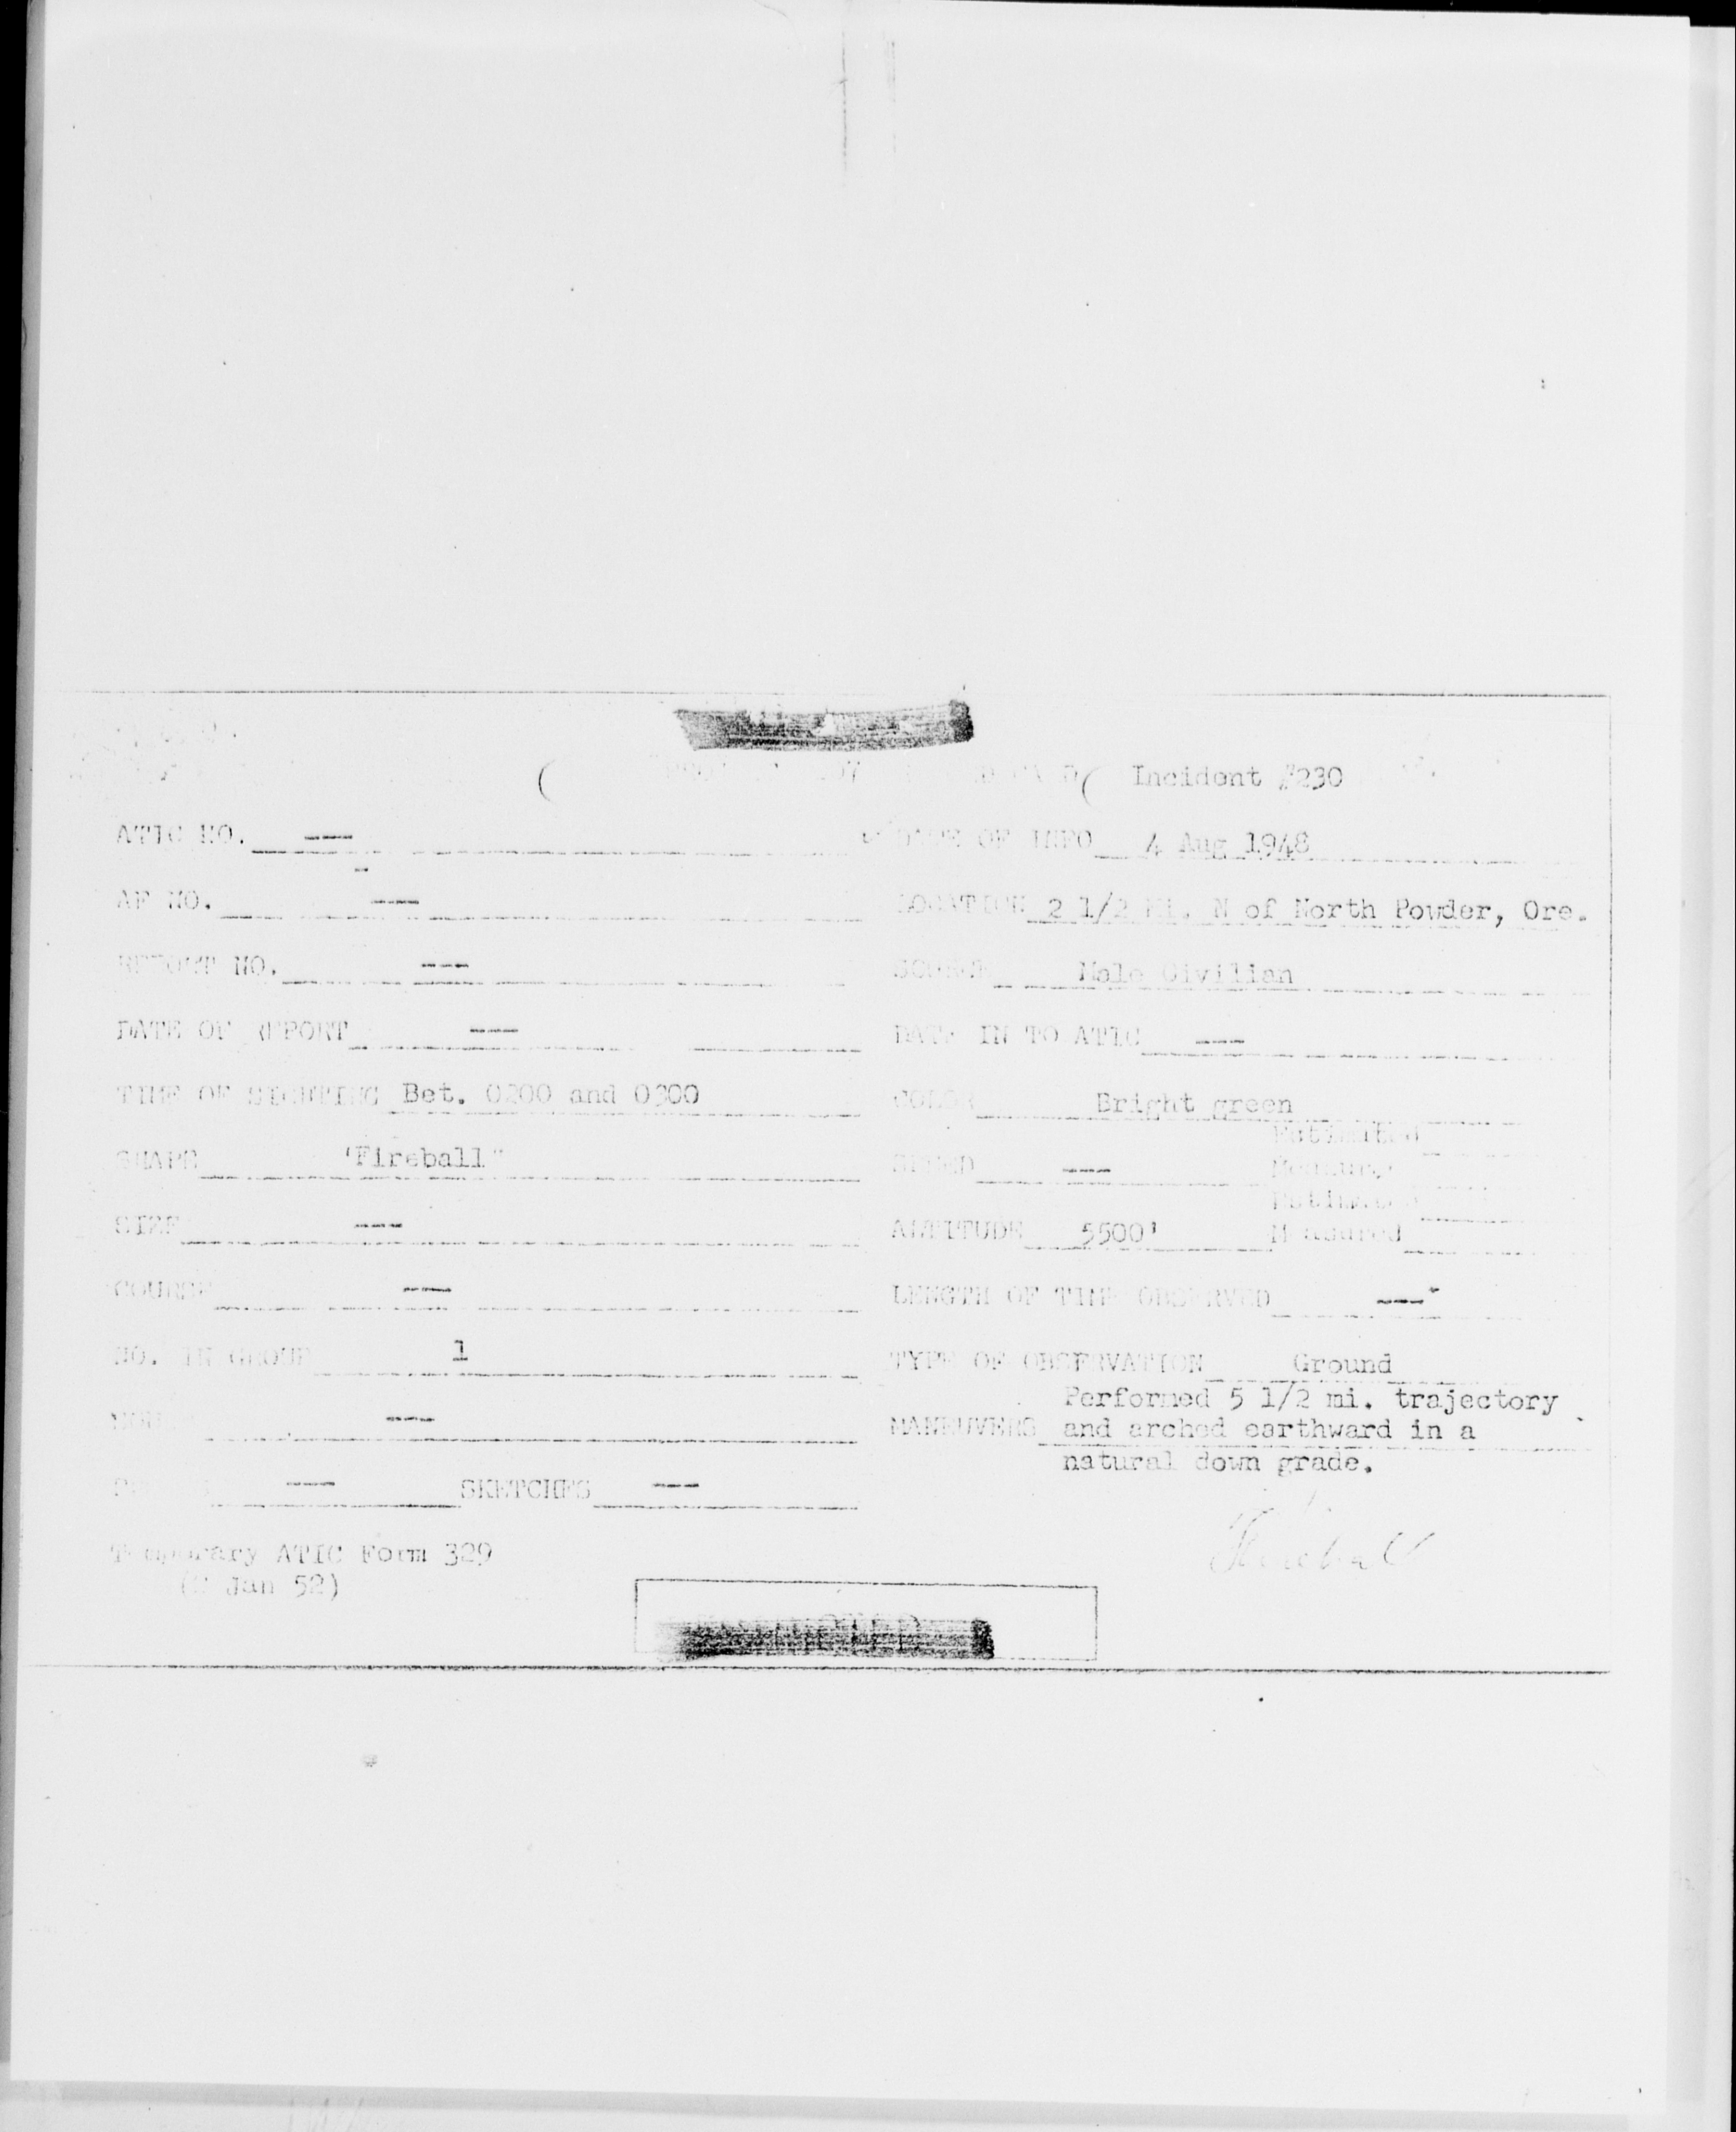 Incident #230
ATIC NO. --- DATE OF INFO 4 Aug 1948
AF NO. --- LOCATION 2 1/2 Mi. N of North Powder, Ore.
REPORT NO. --- SOURCE Male Civilian
DATE OF REPORT --- DATE IN TO ATIC ---
TIME OF SIGHTING Bet. 0200 and 0300 COLOR Bright green
SHAPE "Fireball" SPEED --- Estimated
Measured
SIZE --- ALTITUDE 5500' Estimated
Measured
COURSE --- LENGTH OF TIME OBSERVED ---
NO. IN GROUP 1 TYPE OF OBSERVATION Ground
--- MANEUVERS Performed 5 1/2 mi. trajectory
and arched earthward in a
natural down grade.
--- SKETCHES ---
Temporary ATIC Form 329
Jan 52)